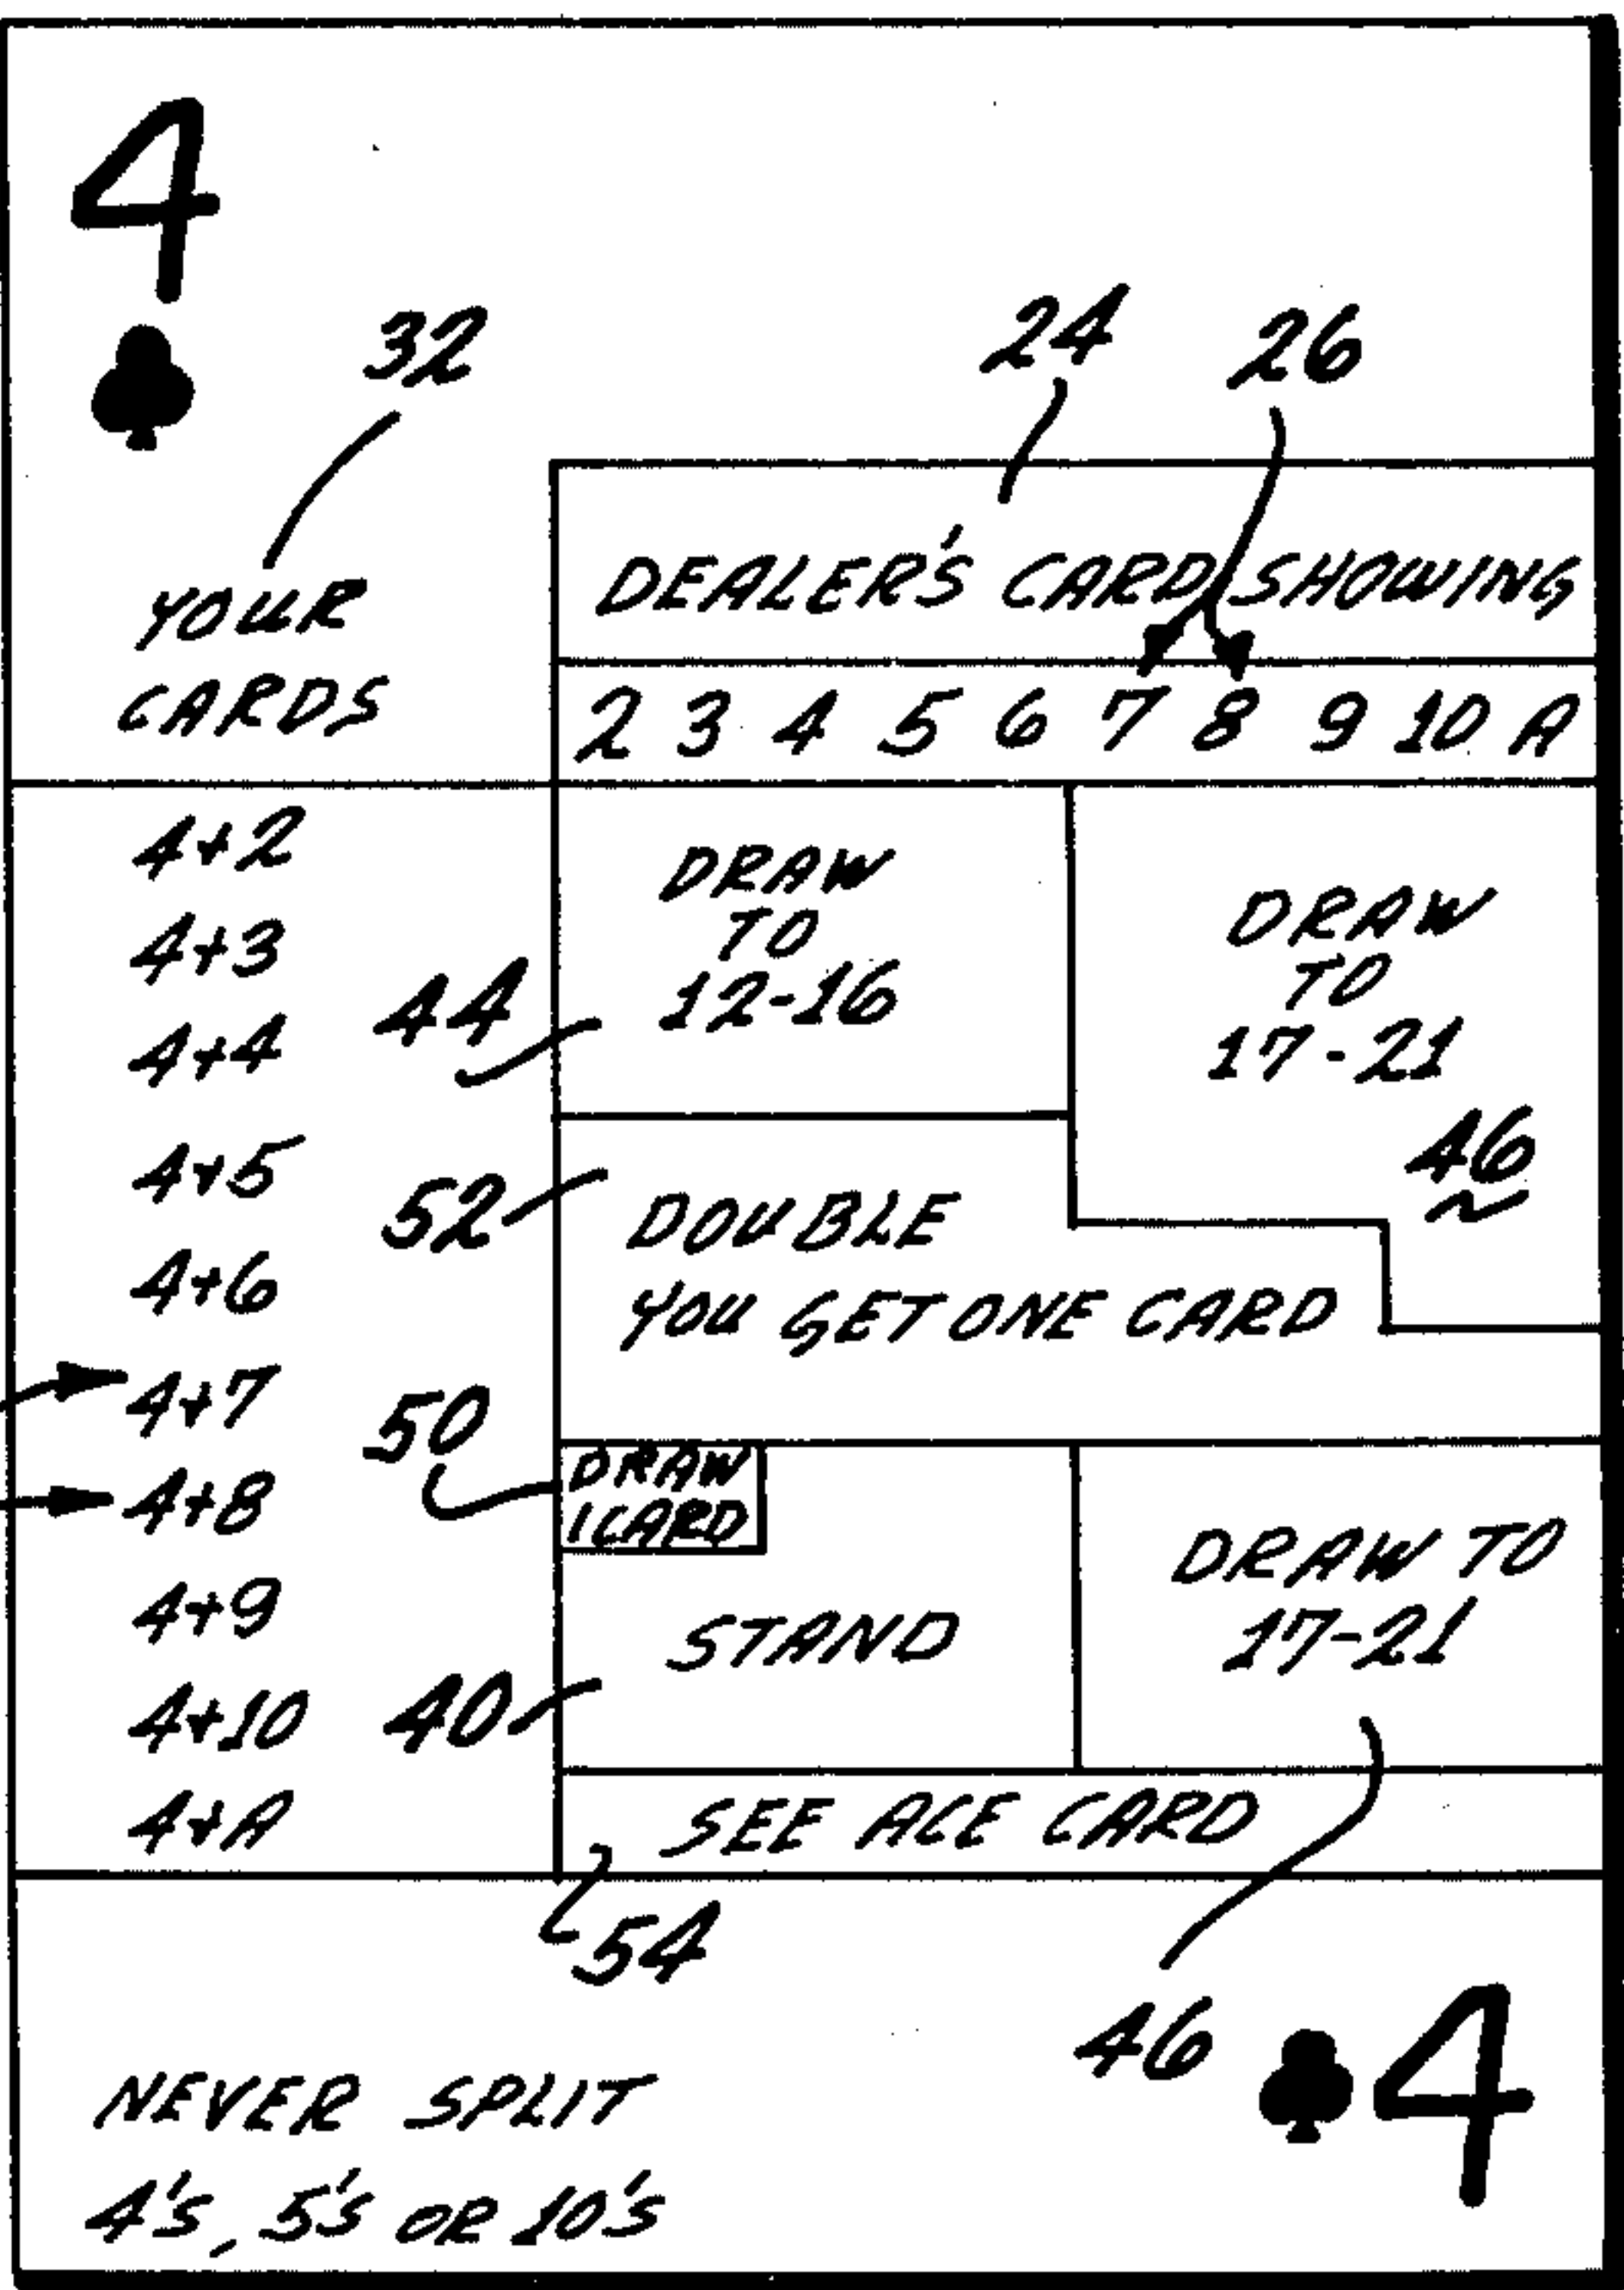 4
32
24 26
YOUR
CARDS
DEALER'S CARD SHOWING
2 3 4 5 6 7 8 9 10 A
4+2
4+3
4+4
4+5
4+6
4+7
4+8
4+9
4+10
4+A
44
DRAW
TO
12-16
DRAW
TO
17-21
46
52
DOUBLE
YOU GET ONE CARD
50
DRAW
1 CARD
40
STAND
DRAW TO
17-21
SEE ACE CARD
54
46
NEVER SPLIT
4'S, 5'S OR 10'S
4